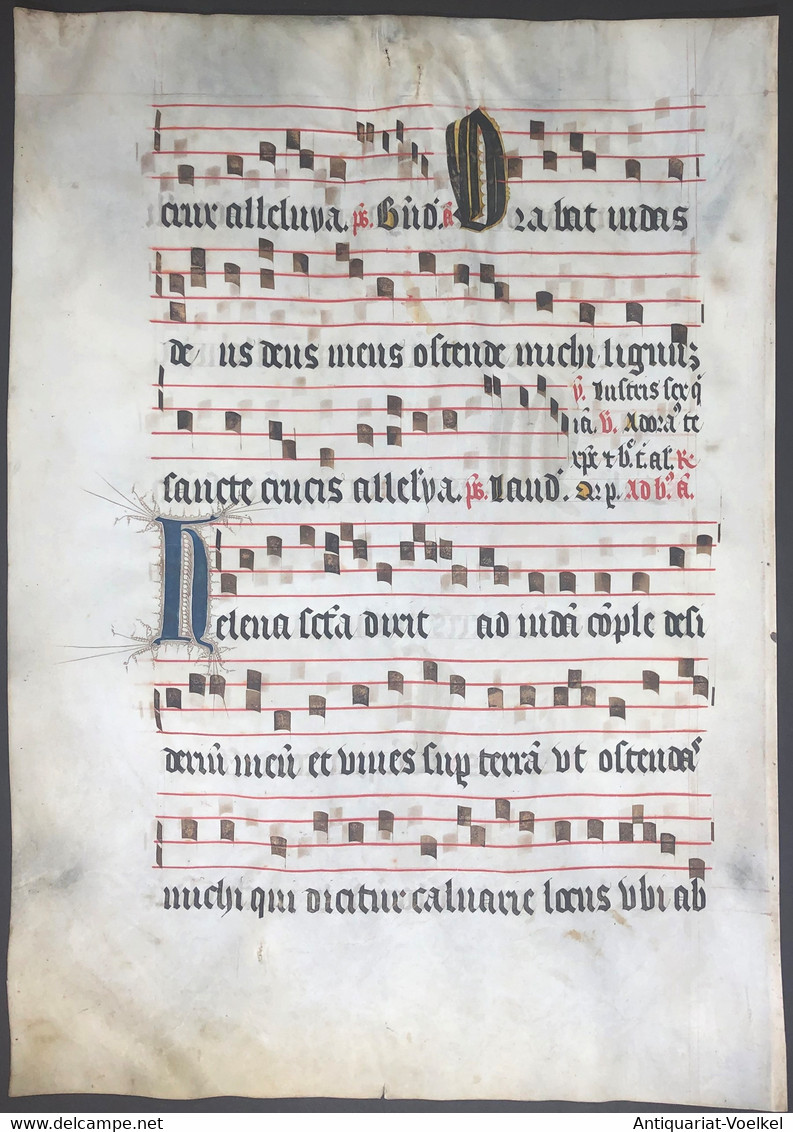 crux alleluya. ps. Bn̄d. a̅. Orabat iudas
deus deus meus ostende michi lignum
v̅. Nr̅is
ia̅. v̅. Adoram⁹ te
xp̅e ⁊ b⁹. t̅. al̅. R̷
sancte crucis allel̅ya. ps. Laud. Or p. Ad b⁹. a̅.
Helena sc̅ta dixit ad iuda̅ co̅ple desi
deriu̅ meu̅ et viues sup̱ terra̅ vt ostenda⁹
michi qui dicitur caluarie locus vbi ab
Antiquariat-Voelkel